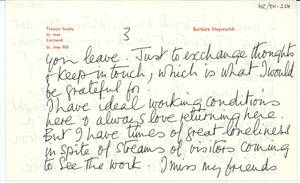 Trewyn Studio
St. Ives
Cornwall
St. Ives
Barbara Hepworth
3
you leave. Just to exchange thoughts
& keep in touch, which is what I would
be grateful for
I have ideal working conditions
here & always love returning here.
But I have times of great loneliness
in spite of streams of visitors coming
to see the work. I miss my friends